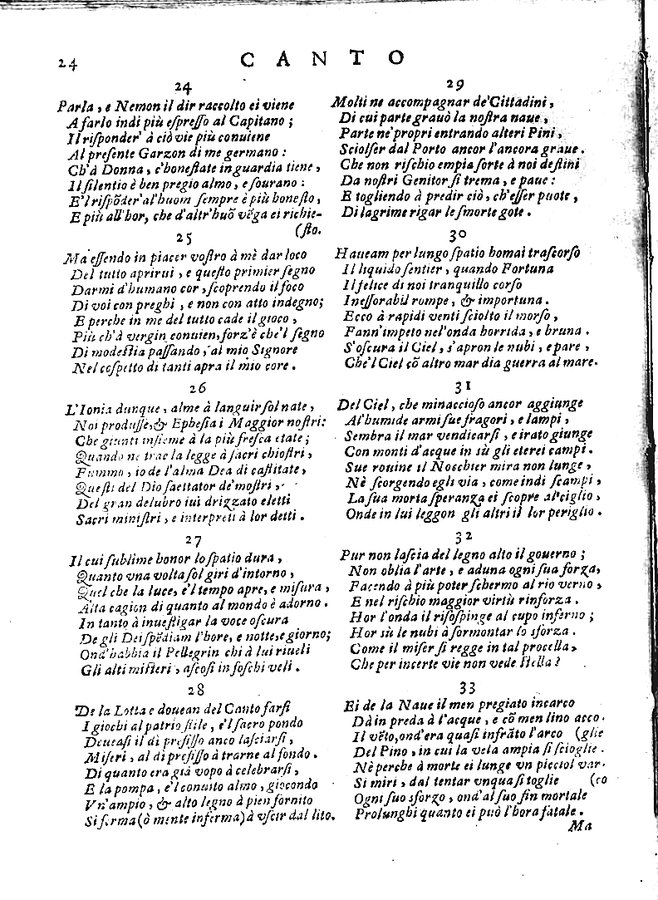 24
CANTO
24
Parla, e Nemon il dir raccolto ei viene
A farlo indi più eſpreſſo al Capitano;
Il riſponder' à ciò vie più conuiene
Al preſente Garzon di me germano:
Ch'à Donna, c'honeſtate in guardia tiene,
Il ſilentio è ben pregio almo, e ſourano:
E'l riſpõder' al'huom ſempre è più honeſto,
E più all'hor, che d'altr'huõ vẽga ei richie-
(ſto.
25
Ma eſſendo in piacer voſtro à mè dar loco
Del tutto aprirui, e queſto primier ſegno
Darmi d'humano cor, ſcoprendo il foco
Di voi con preghi, e non con atto indegno;
E perche in me del tutto cade il gioco,
Più ch'à vergin conuien, forz'è che'l ſegno
Di modeſtia paſſando, al mio Signore
Nel coſpetto di tanti apra il mio core.
26
L'Ionia dunque, alme à languir ſol nate,
Noi produſſe, & Epheſia i Maggior noſtri:
Che giunti inſieme à la più freſca etate;
Quando ne trae la legge à ſacri chioſtri,
Fummo, io de l'alma Dea di caſtitate,
Queſti del Dio ſaettator de'moſtri,
Del gran delubro iui drizzato eletti
Sacri miniſtri, e interpreti à lor detti.
27
Il cui ſublime honor lo ſpatio dura,
Quanto vna volta ſol giri d'intorno,
Quel che la luce, e'l tempo apre, e miſura,
Alta cagion di quanto al mondo è adorno.
In tanto à inueſtigar la voce oſcura
De gli Dei ſpẽdiam l'hore, e notte, e giorno;
Ond'habbia il Pellegrin chi à lui riueli
Gli alti miſteri, aſcoſi in foſchi veli.
28
De la Lotta e douean del Canto farſi
I giochi al patrio ſtile, e'l ſacro pondo
Deueaſi il dì prefiſſo anco laſciarſi,
Miſeri, al dì prefiſſo à trarne al fondo.
Di quanto era già vopo à celebrarſi,
E la pompa, e'l conuito almo, giocondo
Vn'ampio, & alto legno à pien fornito
Si ferma (ò mente inferma) à vſcir dal lito.
29
Molti ne accompagnar de'Cittadini,
Di cui parte grauò la noſtra naue,
Parte ne'propri entrando alteri Pini,
Sciolſer dal Porto ancor l'ancora graue.
Che non riſchio empia ſorte à noi deſtini
Da noſtri Genitor ſi trema, e paue:
E togliendo à predir ciò, ch'eſſer puote,
Di lagrime rigar le ſmorte gote.
30
Haueam per lungo ſpatio homai traſcorſo
Il liquido ſentier, quando Fortuna
Il felice di noi tranquillo corſo
Ineſſorabil rompe, & importuna.
Ecco à rapidi venti ſciolto il morſo,
Fann'impeto nel'onda horrida, e bruna.
S'oſcura il Ciel, s'apron le nubi, e pare,
Che'l Ciel cõ altro mar dia guerra al mare.
31
Del Ciel, che minaccioſo ancor aggiunge
Al'humide armi ſue fragori, e lampi,
Sembra il mar vendicarſi, e irato giunge
Con monti d'acque in sù gli eterei campi.
Sue rouine il Nocchier mira non lunge,
Nè ſcorgendo egli via, come indi ſcampi,
La ſua morta ſperanza ei ſcopre al'ciglio,
Onde in lui leggon gli altri il lor periglio.
32
Pur non laſcia del legno alto il gouerno;
Non oblia l'arte, e aduna ogni ſua forza,
Facendo à più poter ſchermo al rio verno,
E nel riſchio maggior virtù rinforza.
Hor l'onda il riſoſpinge al cupo inferno;
Hor sù le nubi à formontar lo sforza.
Come il miſer ſi regge in tal procella,
Che per incerte vie non vede ſtella?
33
Ei de la Naue il men pregiato incarco
Dà in preda à l'acque, e cõ men lino acco.
Il vẽto, ond'era quaſi infrãto l'arco (glie
Del Pino, in cui la vela ampia ſi ſcioglie.
Nè perche à morte ei lunge vn picciol var-
Si miri, dal tentar vnqua ſi toglie (co
Ogni ſuo sforzo, ond'al ſuo fin mortale
Prolunghi quanto ei può l'hora fatale.
Ma